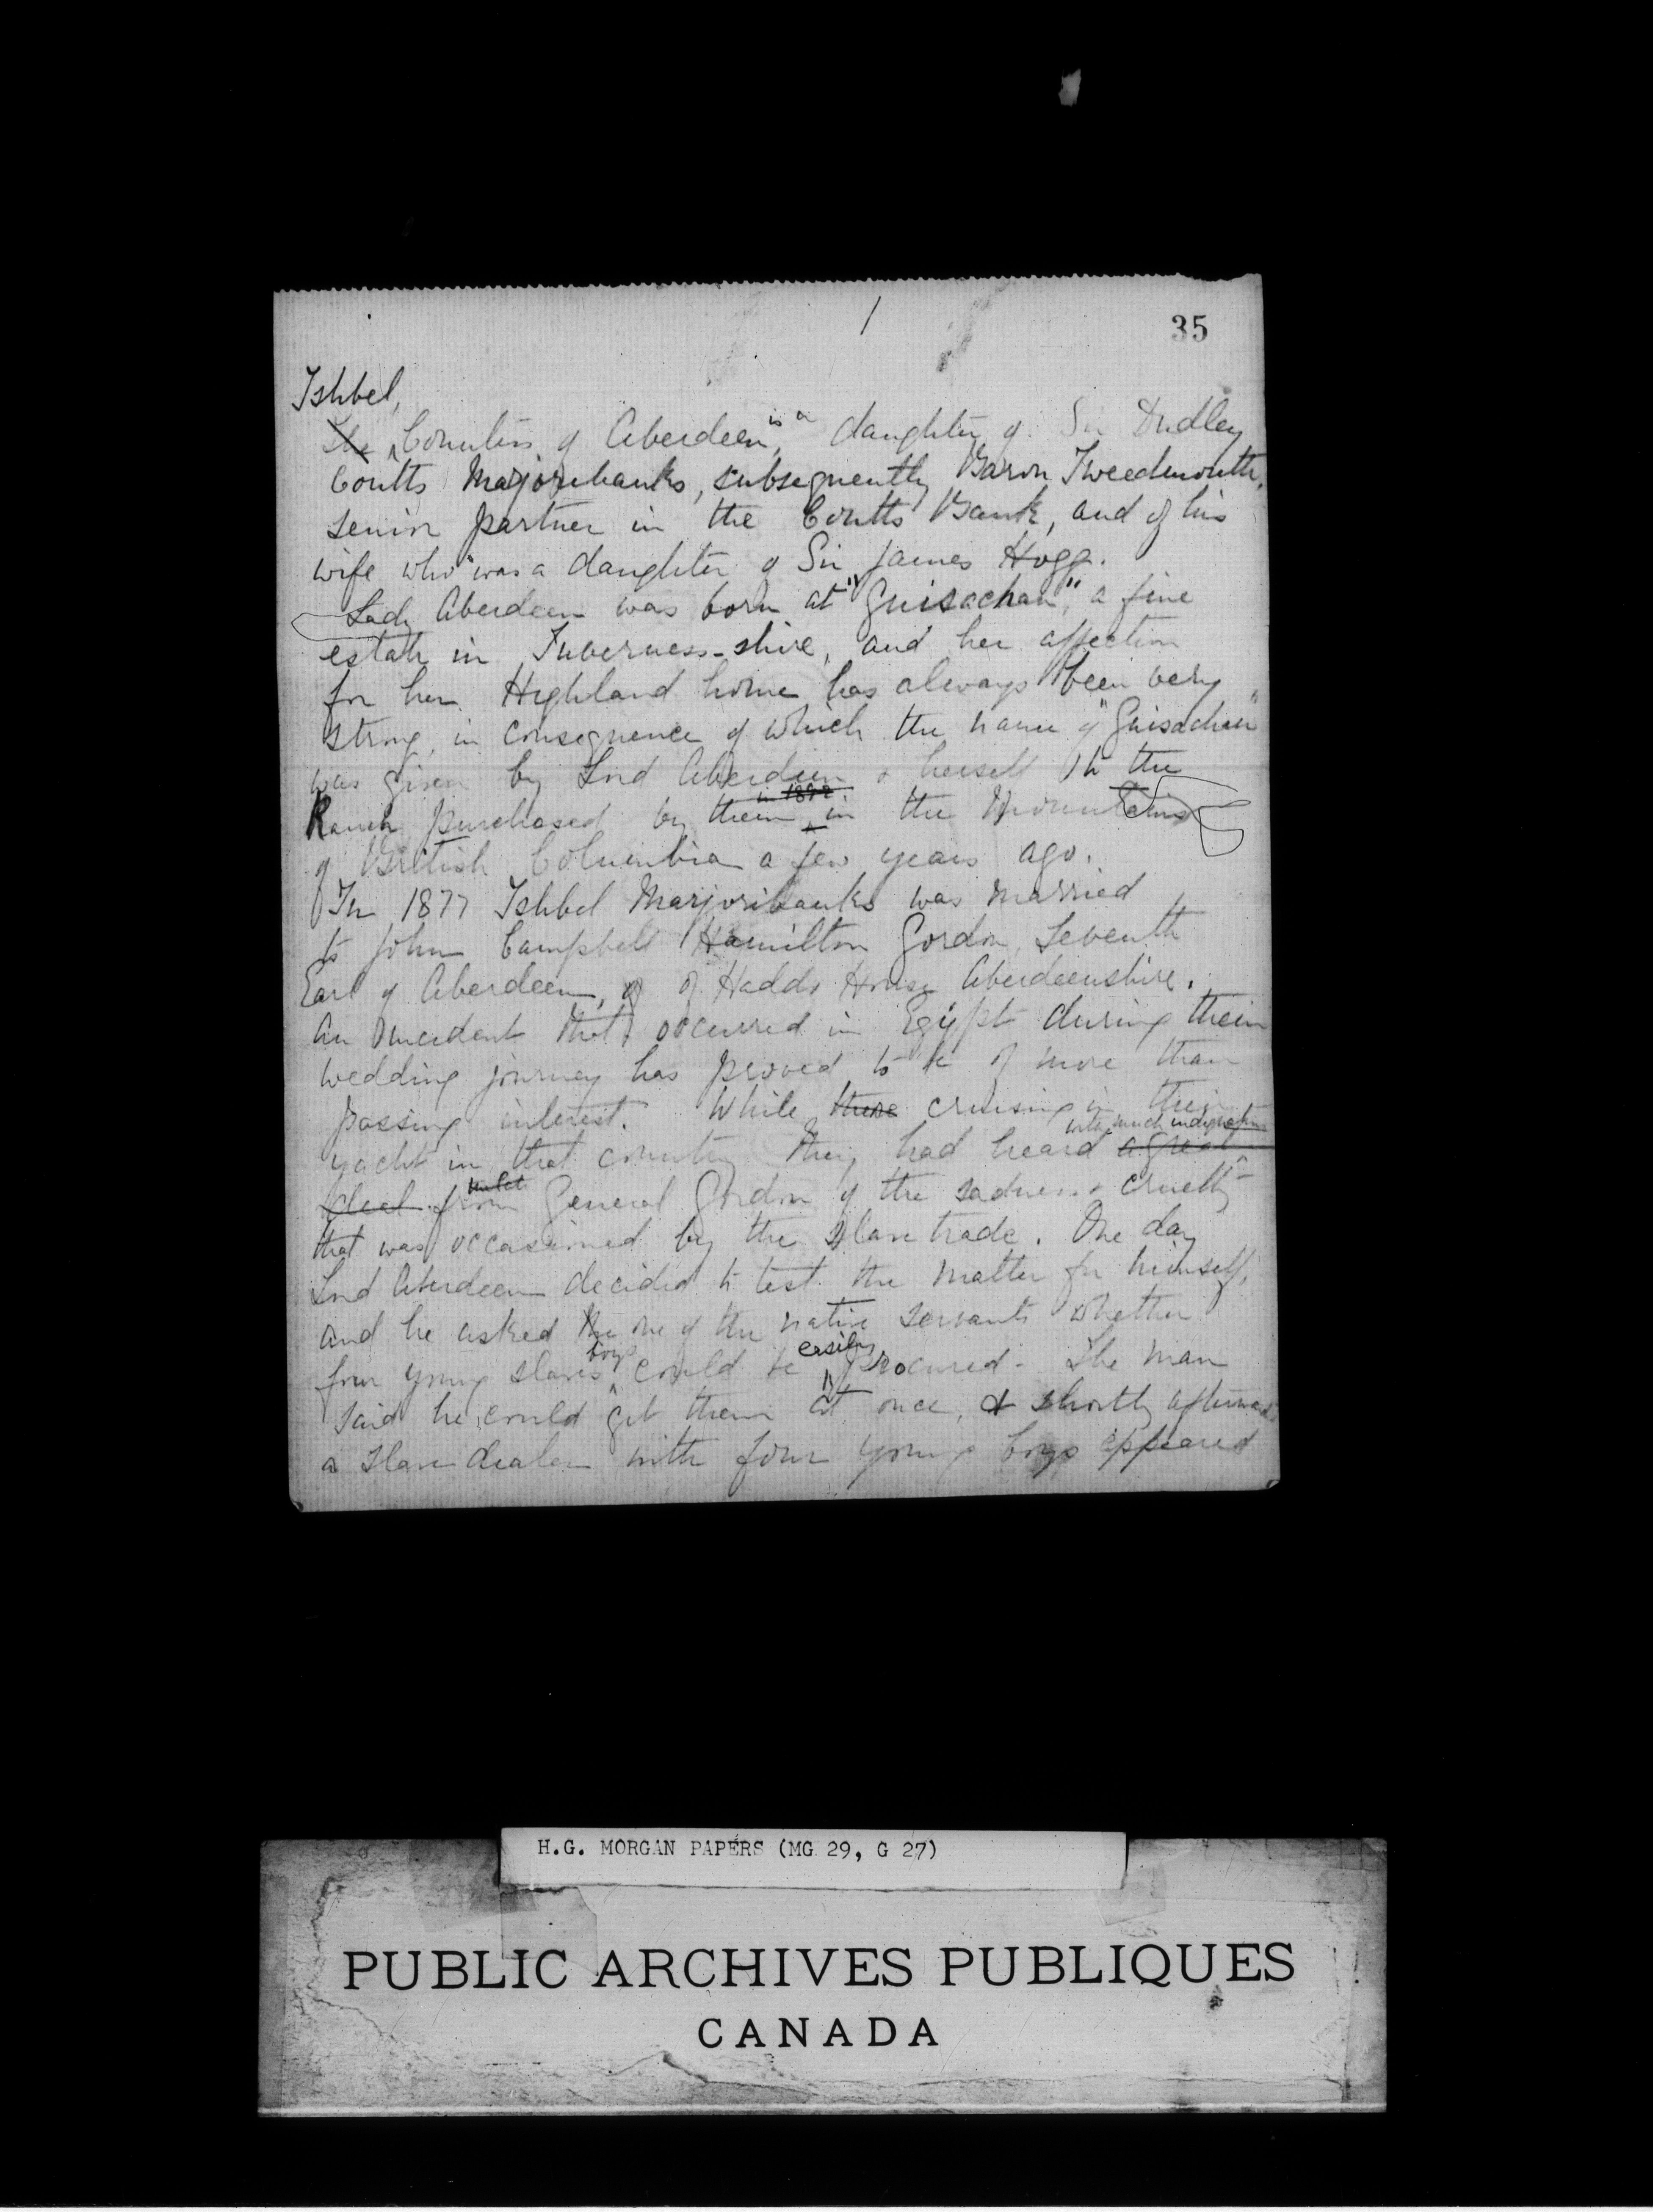 1
35
Ishbel,
The Countess of Aberdeen, is a daughter of Sir Dudley
Coutts Marjoribanks, subsequently Baron Tweedmouth,
senior partner in the Coutts Bank, and of his
wife who was a daughter of Sir James Hogg.
Lady Aberdeen was born at "Guisachan", a fine
estate in Inverness-shire, and her affection
for her Highland home has always been very
strong, in consequence of which the name of "Guisachan"
was given by Lord Aberdeen & herself to the
in 1892
Ranch purchased by them in the Mountains
of British Columbia a few years ago.
In 1877 Ishbel Marjoribanks was married
to John Campbell Hamilton Gordon, Seventh
Earl of Aberdeen, of of Haddo House Aberdeenshire.
An incident that occurred in Egypt during their
wedding journey has proved to be of more than
passing interest. While there cruising in their
with much indignation
yacht in that country they had heard a great
deal from General Gordon of the sadness & cruelty
that was occasioned by the slave trade. One day
Lord Aberdeen decided to test the matter for himself,
and he asked the one of the native servants whether
boys easily
four young slaves could be procured. The man
said he could get them at once, & shortly afterwards
a slave dealer with four young boys appeared
H.G. MORGAN PAPERS (MG 29, G 27)
PUBLIC ARCHIVES PUBLIQUES
CANADA